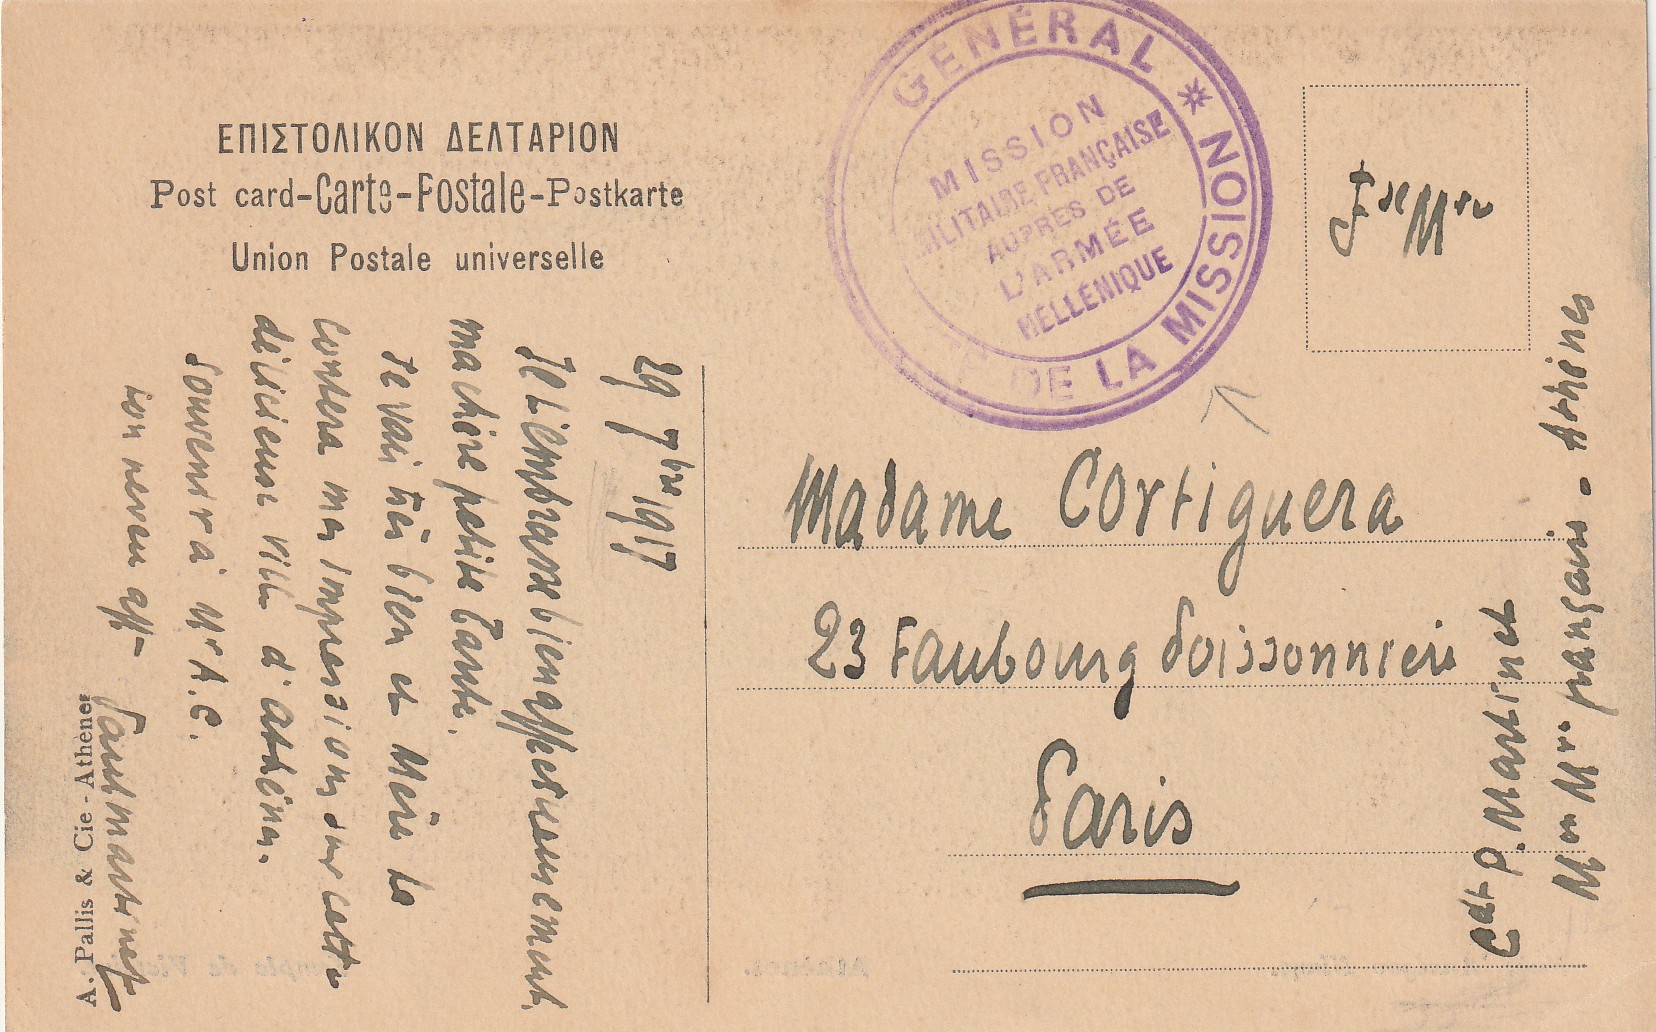 ΕΠΙΣΤΟΛΙΚΟΝ ΔΕΛΤΑΡΙΟΝ
Post card-Carte-Postale-Postkarte
Union Postale universelle
29 7bre 1917
Je t'embrasse bien affectueusement,
ma chère petite Tante.
Je vais très bien et Mère te
contera mes impressions sur cette
délicieuse ville d'Athènes.
Souvenir à Mr A. C.
ton neveu afft
Paul Martinet
A. Pallis & Cie - Athènes
GÉNÉRAL * DE LA MISSION
MISSION
MILITAIRE FRANÇAISE
AUPRÈS DE
L'ARMÉE
HELLÉNIQUE
Fse Mre
Madame Cortiguera
23 Faubourg Poissonnière
Paris
Cdt P. Martinet
Mon Mre française - Athènes
Athènes.